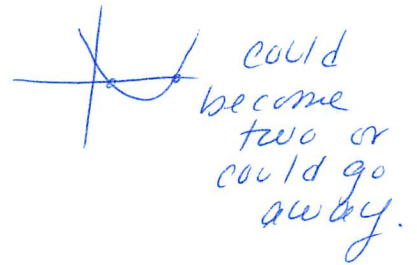 could
become
two or
could go
away.